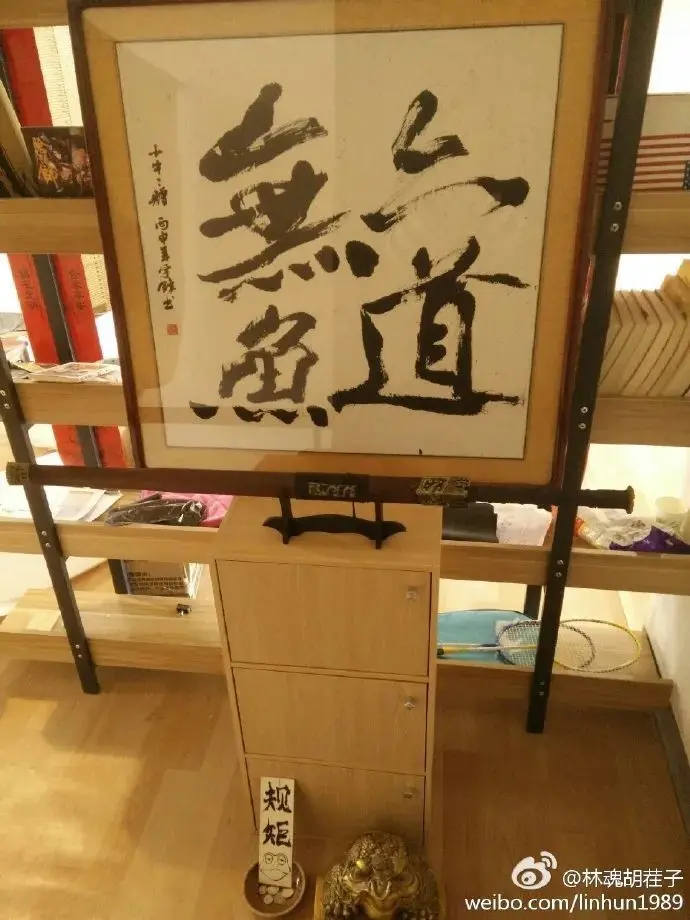 六道
無魚
丙申年
规矩
@林魂胡茬子
weibo.com/linhun1989